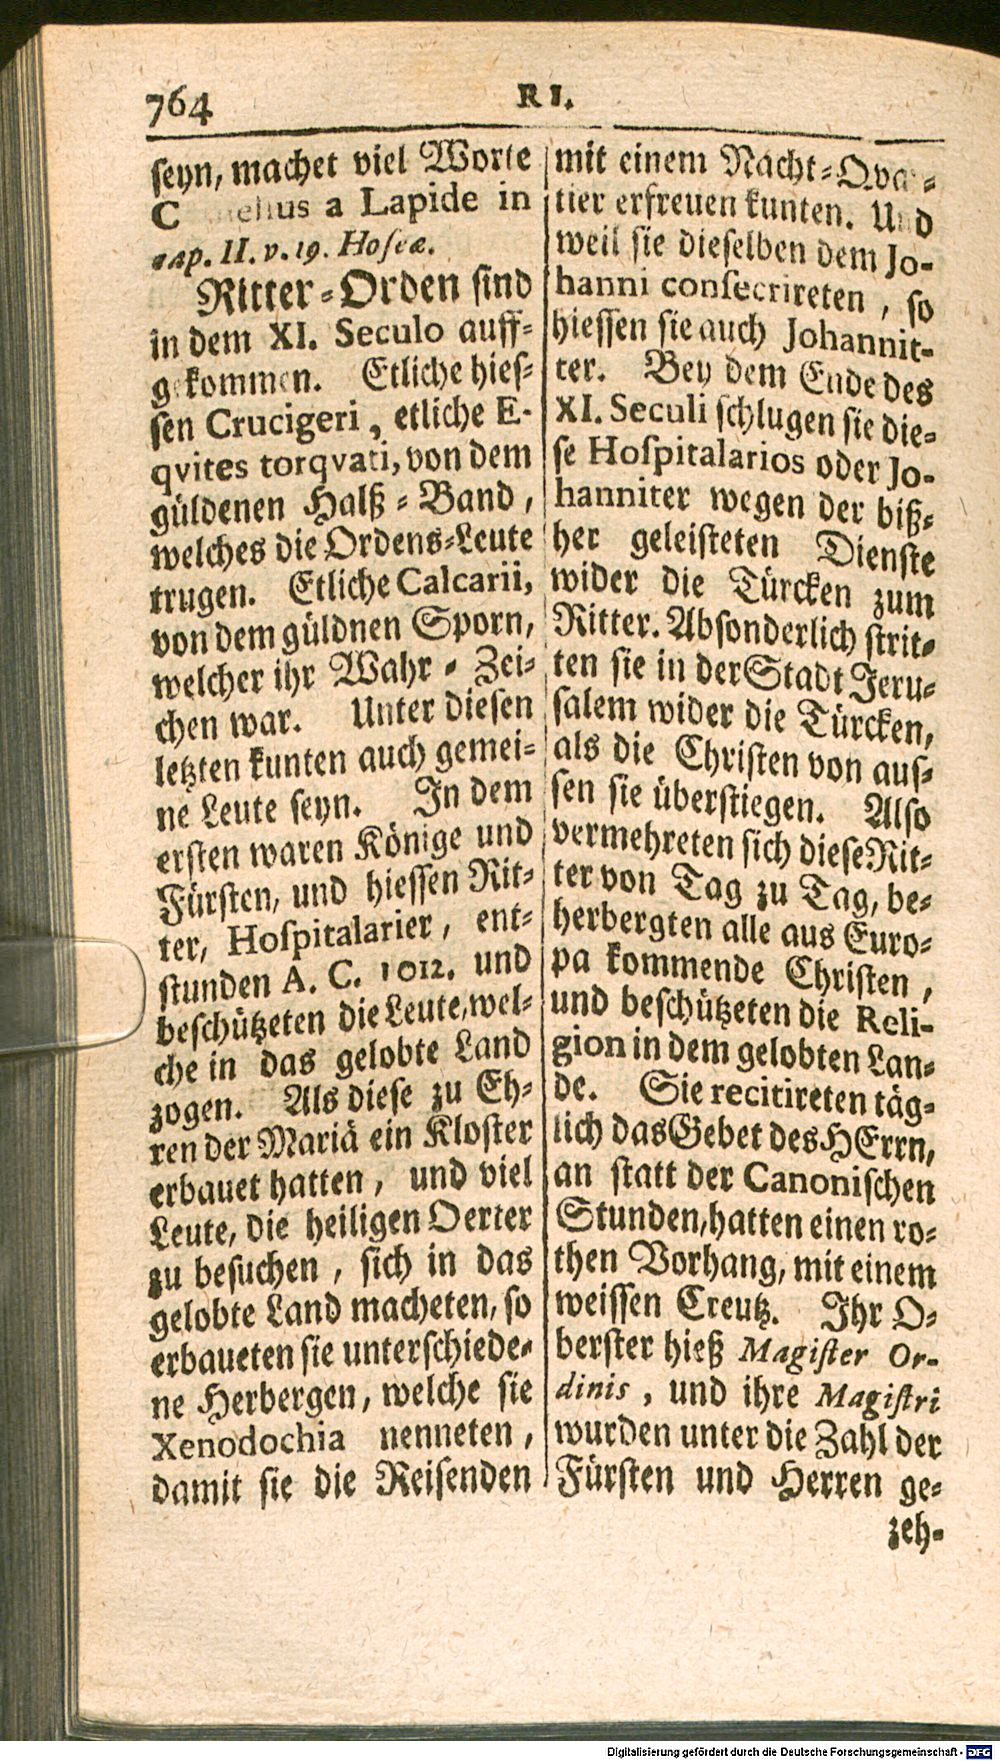 764
RI.
seyn, machet viel Worte
a Lapide in
cap. II. v. 19. Hoseæ.
Ritter-Orden sind
in dem XI. Seculo auff-
gekommen. Etliche hies-
sen Crucigeri, etliche E-
qvites torqvati, von dem
güldenen Halß-Band,
welches die Ordens-Leute
trugen. Etliche Calcarii,
von dem güldnen Sporn,
welcher ihr Wahr-Zei-
chen war. Unter diesen
letzten kunten auch gemei-
ne Leute seyn. In dem
ersten waren Könige und
Fürsten, und hiessen Rit-
ter, Hospitalarier, ent-
stunden A. C. 1012. und
beschützeten die Leute, wel-
che in das gelobte Land
zogen. Als diese zu Eh-
ren der Mariä ein Kloster
erbauet hatten, und viel
Leute, die heiligen Oerter
zu besuchen, sich in das
gelobte Land macheten, so
erbaueten sie unterschiede-
ne Herbergen, welche sie
Xenodochia nenneten,
damit sie die Reisenden
mit einem Nacht-Qvar-
tier erfreuen kunten. Und
weil sie dieselben dem Jo-
hanni consecrireten, so
hiessen sie auch Johannit-
ter. Bey dem Ende des
XI. Seculi schlugen sie die-
se Hospitalarios oder Jo-
hanniter wegen der biß-
her geleisteten Dienste
wider die Türcken zum
Ritter. Absonderlich strit-
ten sie in der Stadt Jeru-
salem wider die Türcken,
als die Christen von aus-
sen sie überstiegen. Also
vermehreten sich diese Rit-
ter von Tag zu Tag, be-
herbergten alle aus Euro-
pa kommende Christen,
und beschützeten die Reli-
gion in dem gelobten Lan-
de. Sie recitireten täg-
lich das Gebet des HErrn,
an statt der Canonischen
Stunden, hatten einen ro-
then Vorhang, mit einem
weissen Creutz. Ihr O-
berster hieß Magister Or-
dinis, und ihre Magistri
wurden unter die Zahl der
Fürsten und Herren ge-
zeh-
Digitalisierung gefördert durch die Deutsche Forschungsgemeinschaft - DFG